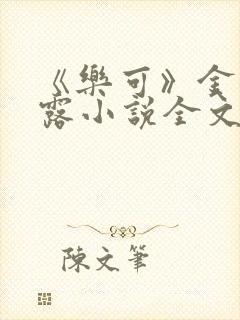 《樂可》金
露小說全文
陳文筆